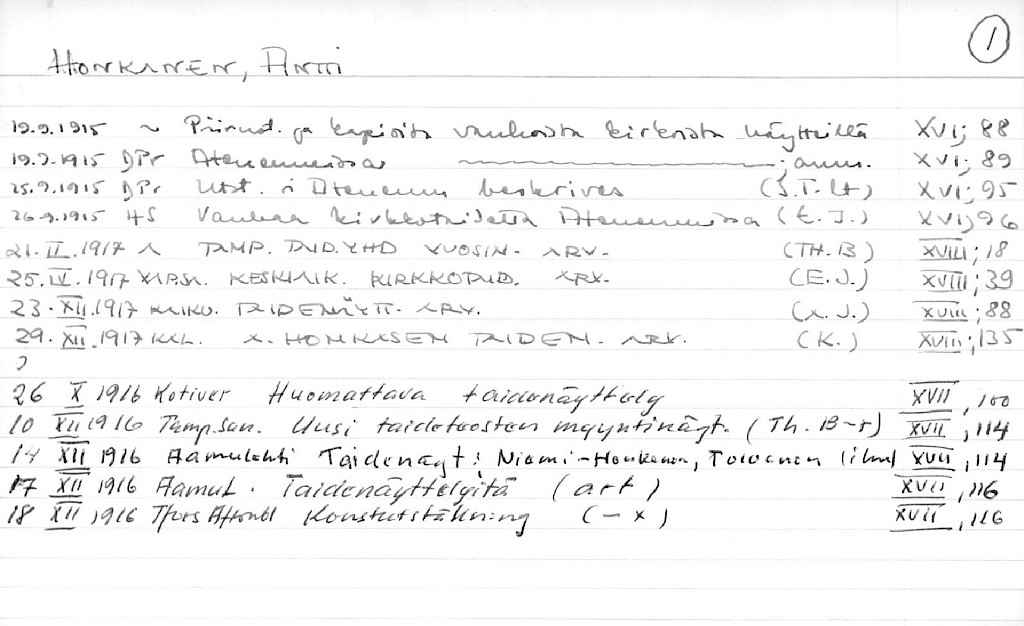 1
HONKANEN, Antti
19.9.1915 ~ Piirust. ja kopioita vanhoista kirkoista näytteillä XVI; 88
19.9.1915 DPr Ateneumissa ; anm. XVI; 89
25.9.1915 DPr Utst. i Ateneum beskrives (S.T-lt) XVI; 95
26.9.1915 HS Vanhaa kirkkotaidetta Ateneumissa (E.J.) XVI; 96
21.II.1917 A TAMP. TAID.YHD VUOSIN. ARV. (TH.B) XVIII; 18
25.IV.1917 KESKIAIK. KIRKKOTAID. ARV. (E.J.) XVIII; 39
23.XII.1917 TAIDENÄYTT. ARV. (A.J.) XVIII; 88
29.XII.1917 KAL. A. HONKASEN TAIDEN. ARV. (K.) XVIII; 135
26 X 1916 Kotiver Huomattava taidenäyttely XVII, 100
10 XII 1916 Tamp.san. Uusi taideteosten myyntinäyt. (Th. B-t) XVII, 114
14 XII 1916 Aamulehti Taidenäyt; Niemi-Honkanen, Toivonen (ilm) XVII, 114
17 XII 1916 Aamul. Taidenäyttelyitä (art) XVII, 116
18 XII 1916 Tfors Aftonbl Konstutställning (-x) XVII, 116